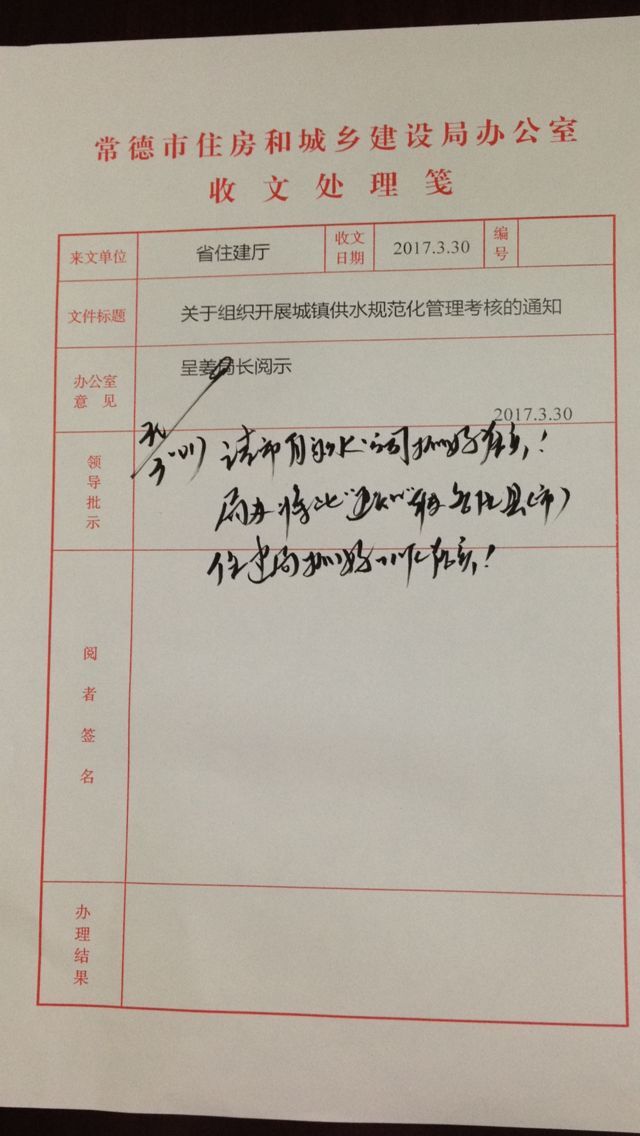 常德市住房和城乡建设局办公室
收文处理笺
来文单位 省住建厅 收文日期 2017.3.30 编号
文件标题 关于组织开展城镇供水规范化管理考核的通知
办公室意见 呈姜局长阅示
2017.3.30
领导批示 请市自来水公司抓好落实！
局办将此通知转各区县(市)
住建局抓好工作落实！
阅者签名
办理结果